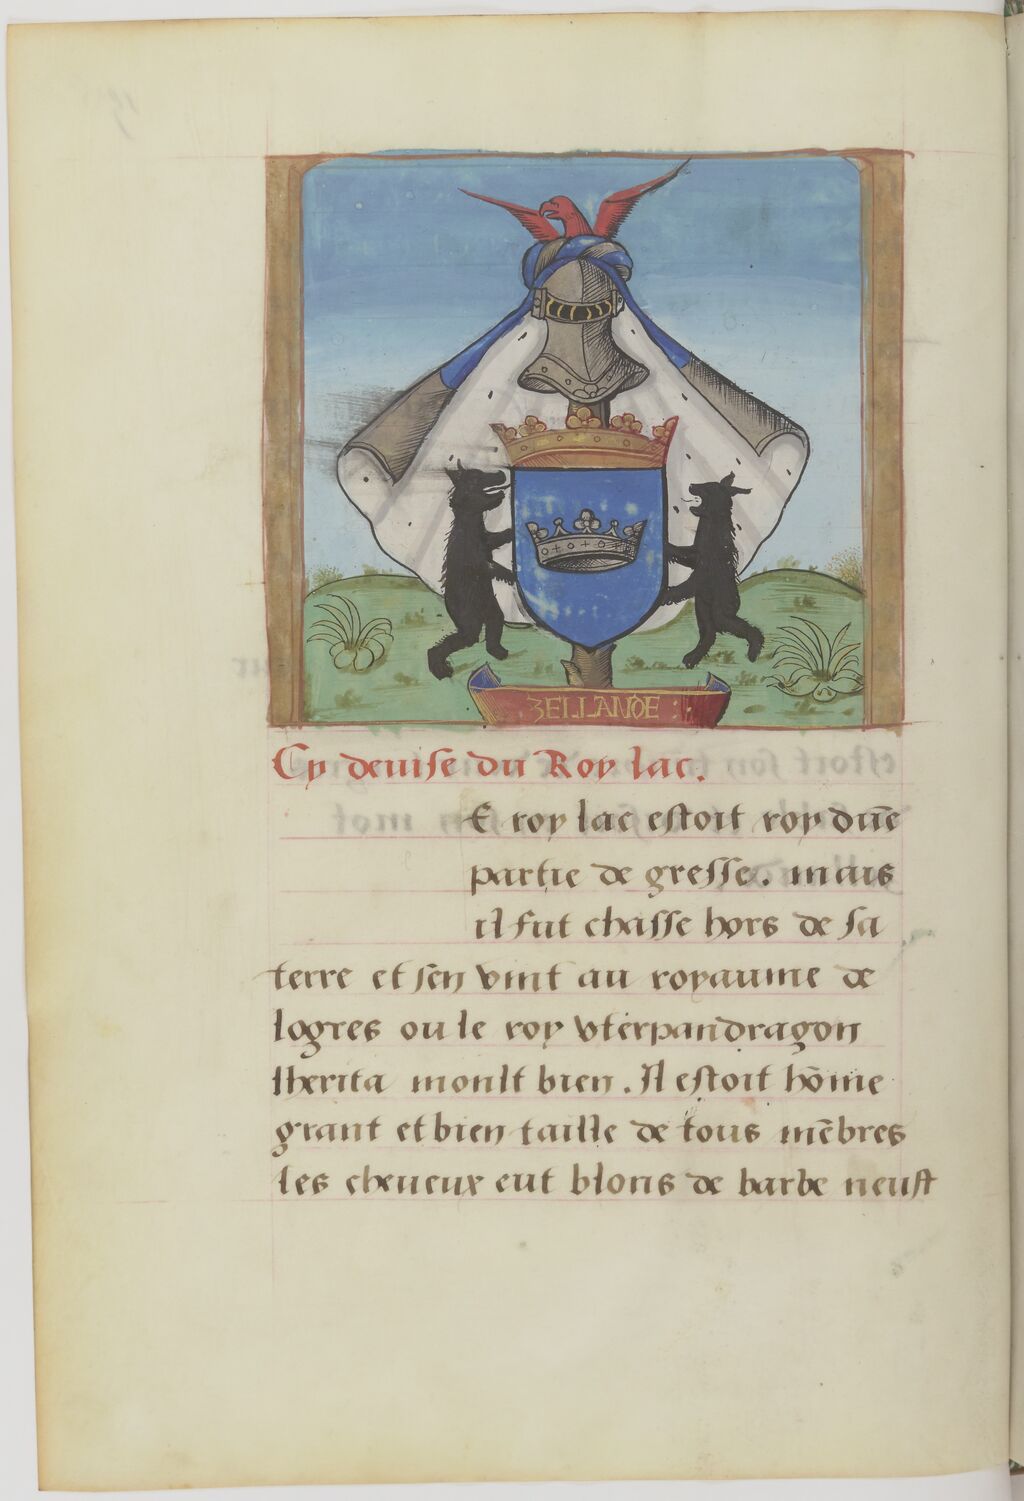 ZELLANDE :
Cy deuise du Roy lac.
E roy lac estoit roy dūe
partie de gresse. mais
il fut chasse hors de sa
terre et sen vint au royaume de
logres ou le roy vterpandragon
lherita moult bien. Il estoit hōme
grant et bien taille de tous mēbres
les cheueux eut blons de barbe neust